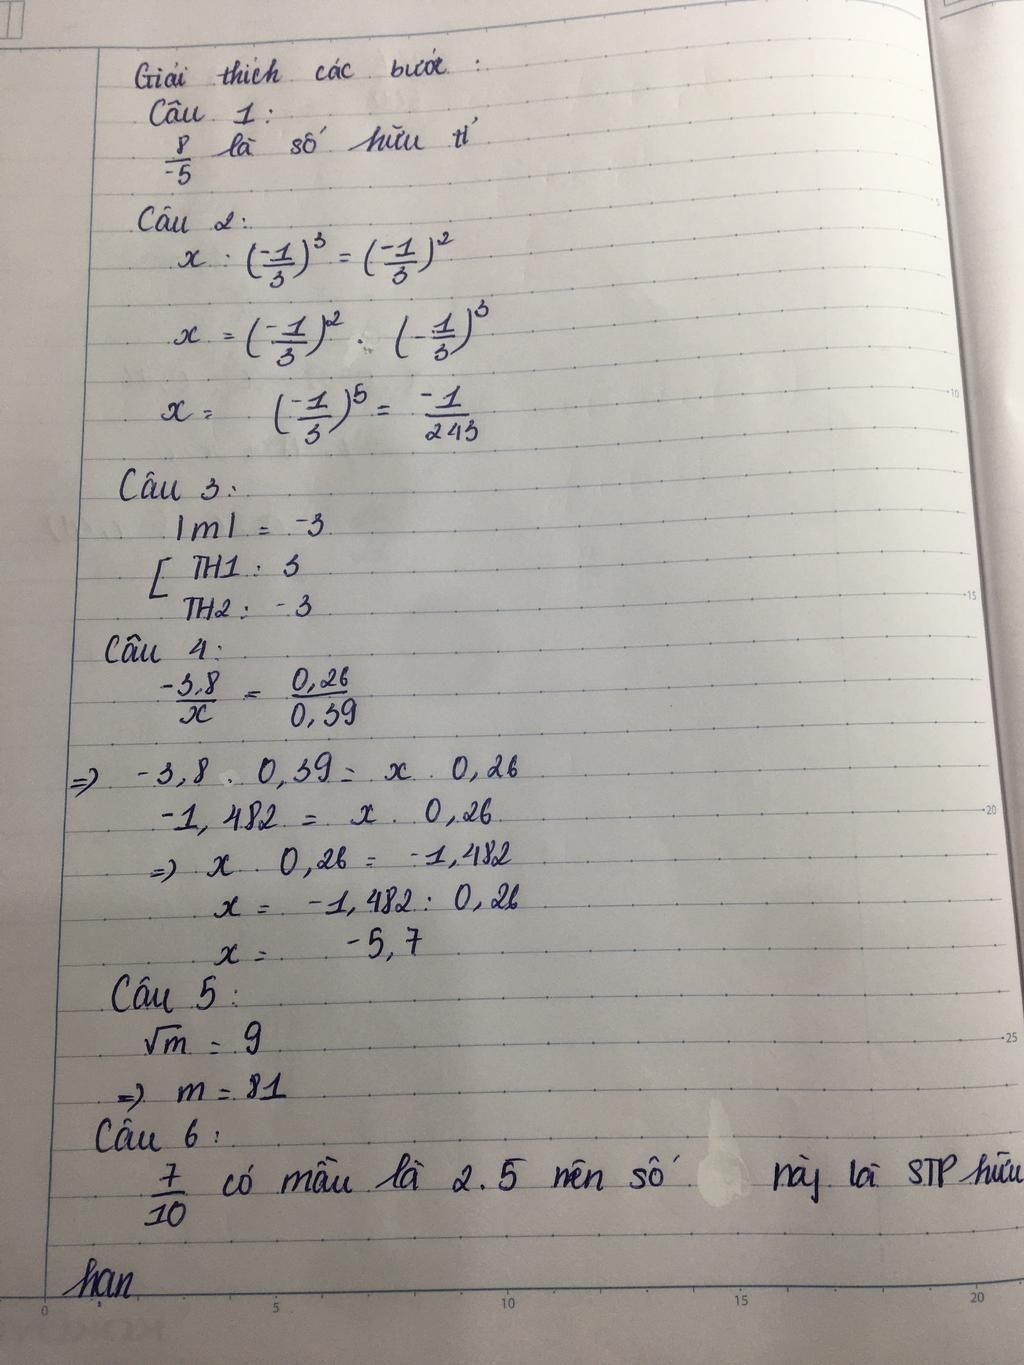 Giải thích các bước :
Câu 1 :
8/-5 là số hữu tỉ
Câu 2 :
x : (-1/3)^3 = (-1/3)^2
x = (-1/3)^2 . (-1/3)^3
x = (-1/3)^5 = -1/243
Câu 3 :
|m| = -3
[ TH1 : 3
TH2 : -3
Câu 4 :
-3,8/x = 0,26/0,39
=> -3,8 . 0,39 = x . 0,26
-1,482 = x . 0,26
=> x . 0,26 = -1,482
x = -1,482 : 0,26
x = -5,7
Câu 5 :
√m = 9
=> m = 81
Câu 6 :
7/10 có mẫu là 2.5 nên số này là STP hữu
hạn
0 5 10 15 20
5
10
15
20
25